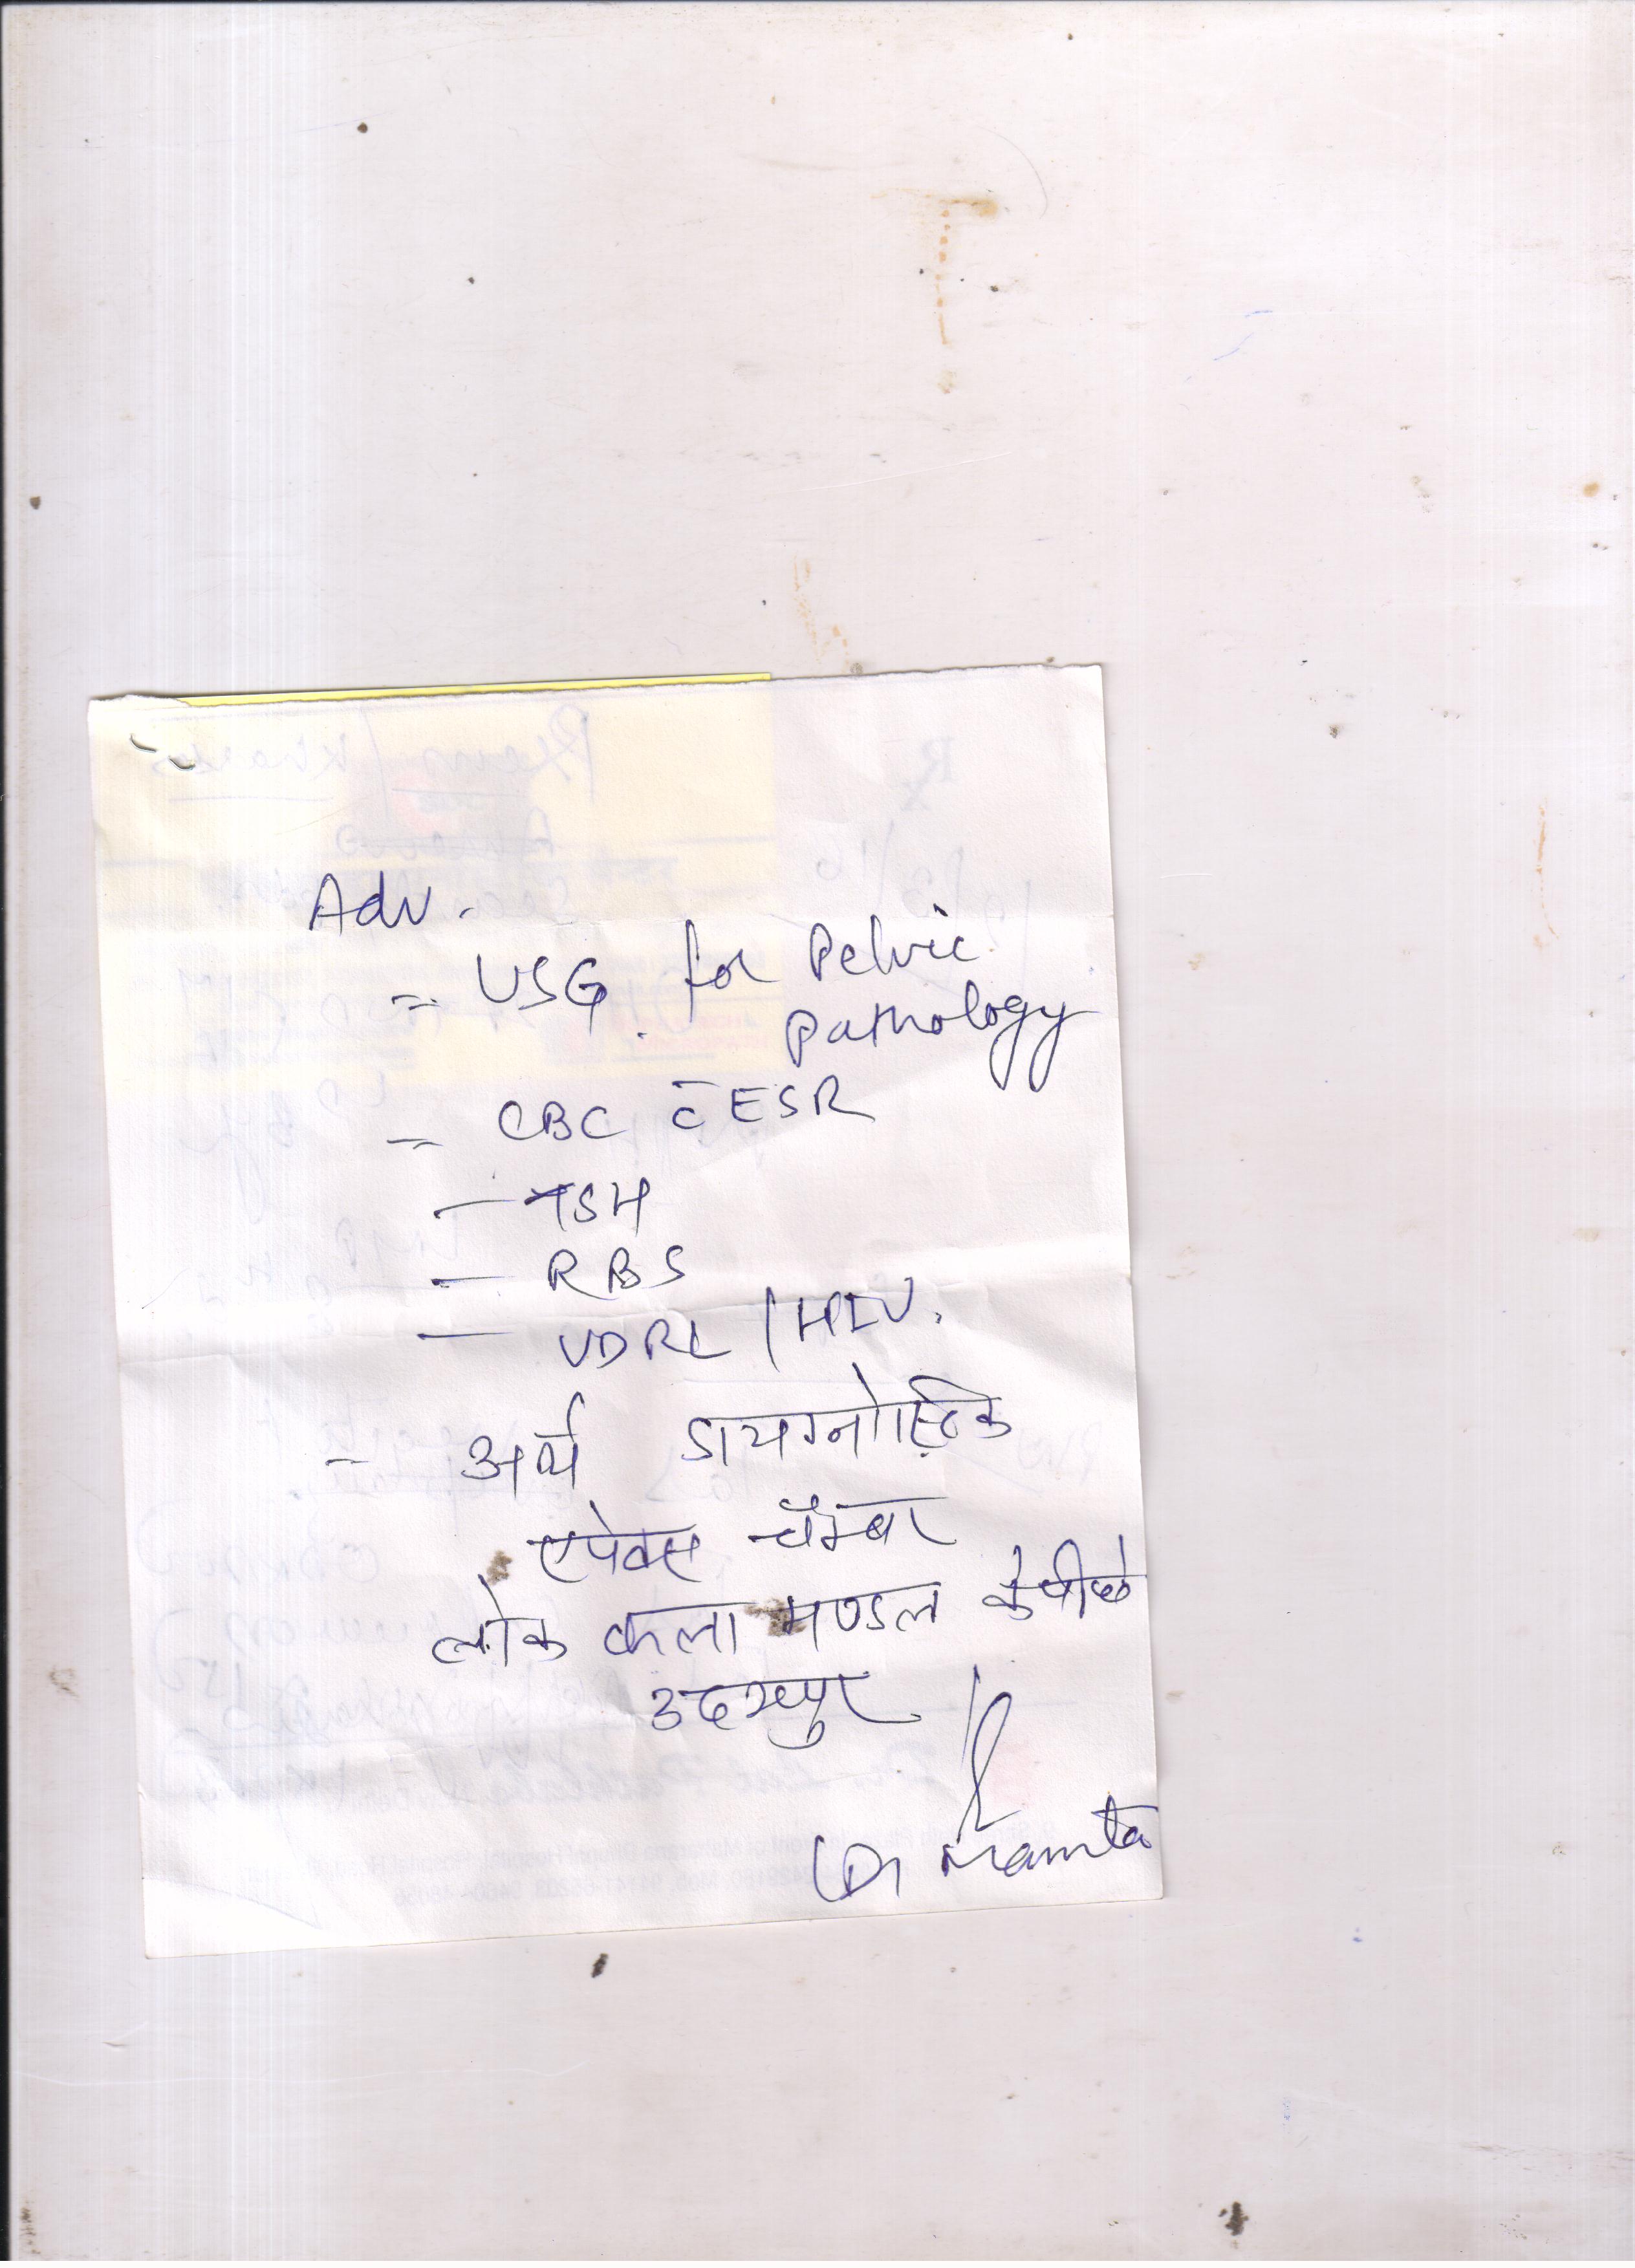 Adv.
= USG. for Pelvic
Pathology
= CBC c̄ ESR
- TSH
- RBS
- VDRL / HIV.
- अर्थ डायग्नोस्टिक
एपेक्स चेम्बर
लोक कला मण्डल के पीछे
उदयपुर
(Dr Mamta